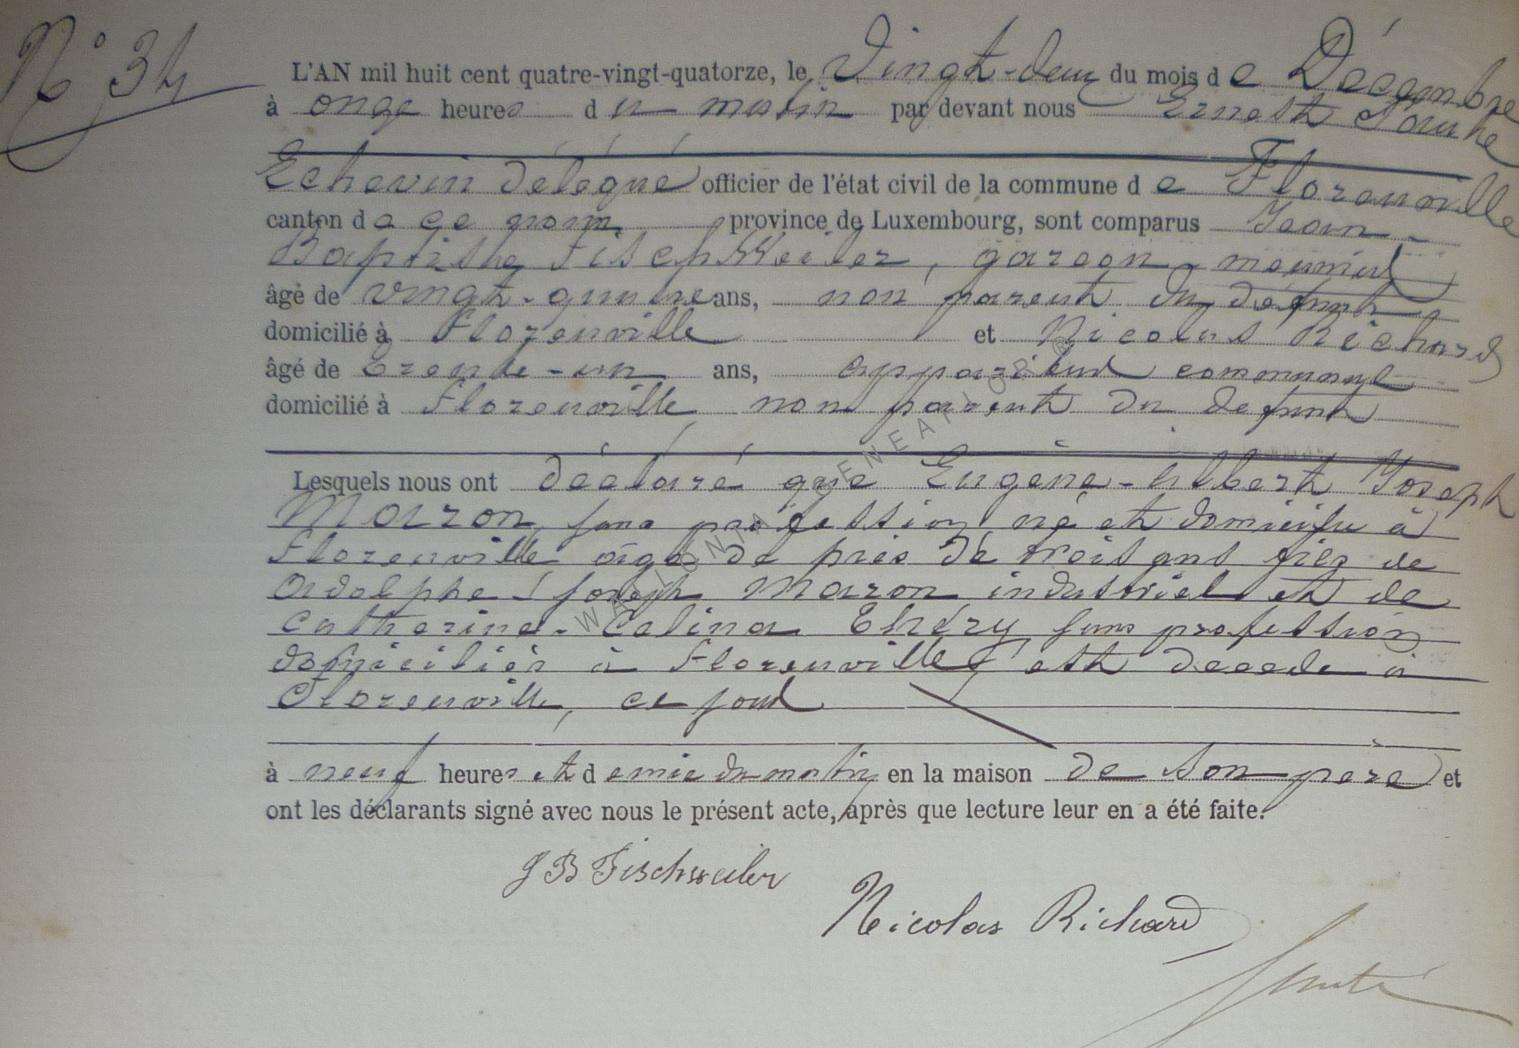 N° 34
L'AN mil huit cent quatre-vingt-quatorze, le Vingt-deux du mois de Décembre
à onze heures du matin par devant nous Ernest
Echevin délégué officier de l'état civil de la commune de Florenville
canton de ce nom province de Luxembourg, sont comparus Jean-
Baptiste Fischweiler, garçon-meunier
âgé de vingt-quatre ans, non parent du défunt
domicilié à Florenville et Nicolas Richard
âgé de trente-un ans, appariteur communal
domicilié à Florenville non parent du defunt
Lesquels nous ont déclaré que Eugène-Albert Joseph
Mazron sans profession né et domicilié à
Florenville âgé de près de trois ans fils de
Adolphe Joseph Mazron industriel et de
Catherine-Celina Thézy sans profession
domiciliés à Florenville est decede à
Florenville, ce jour
à neuf heures et demie du matin en la maison de son père et
ont les déclarants signé avec nous le présent acte, après que lecture leur en a été faite.
JB Fischweiler
Nicolas Richard
WALLONIA GENEALOGIE